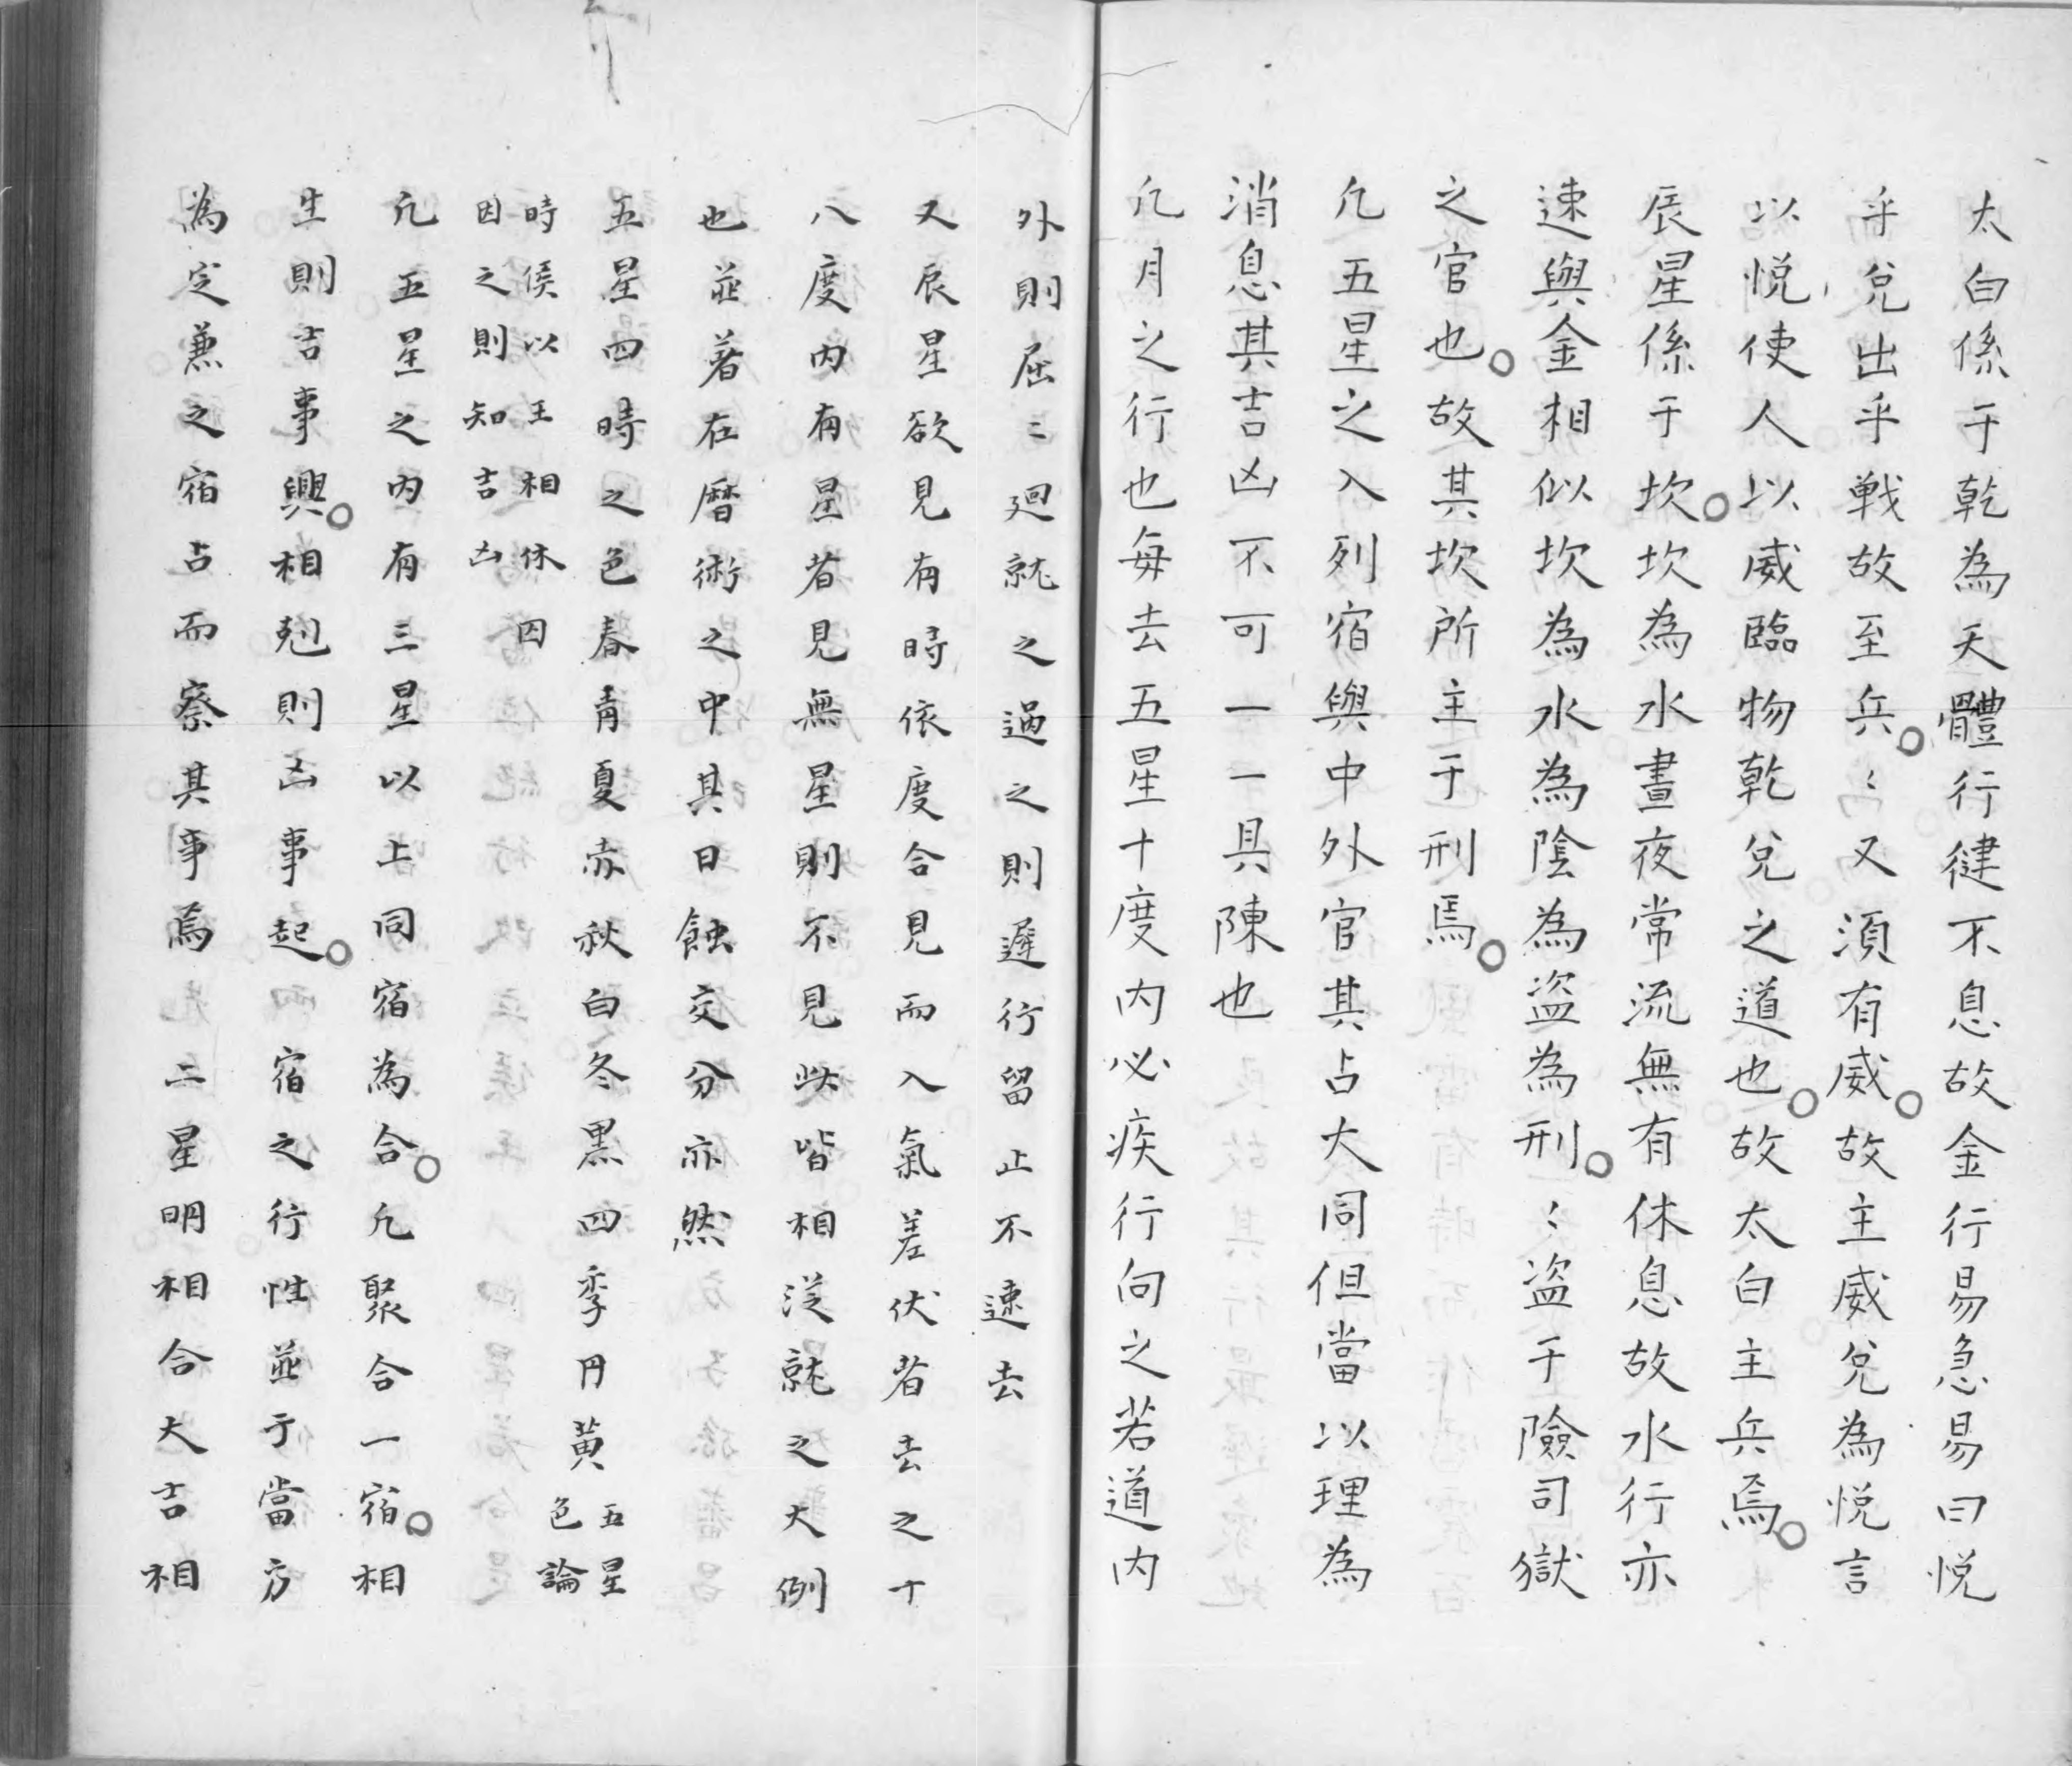 太白係于乾為天體行健不息故金行易急易曰悦
乎兌出乎戦故至兵〻又須有威故主威兌為悦言
以悦使人以威臨物乾兌之道也故太白主兵焉
辰星係于坎坎為水晝夜常流無有休息故水行亦
速與金相似坎為水為陰為盗為刑〻盗于險司獄
之官也故其坎所主于刑焉
凢五星之入列宿與中外官其占大同但當以理為
消息其吉凶不可一一具陳也
凢月之行也每去五星十度内必疾行向之若道内
外則屈〻廻就之過之則遲行留止不速去
又辰星欲見有時依度合見而入氣差伏者去之十
八度内有星者見無星則不見此皆相従就之大例
也並著在暦術之中其日蝕交分亦然
五星四時之色春青夏赤秋白冬黒四季円黄五星色論
時侯以王相休囚
因之則知吉凶
凢五星之内有三星以上同宿為合凢聚合一宿相
生則吉事興相剋則凶事起宿之行性並于當方
為定兼之宿占而察其事焉二星明相合大吉相